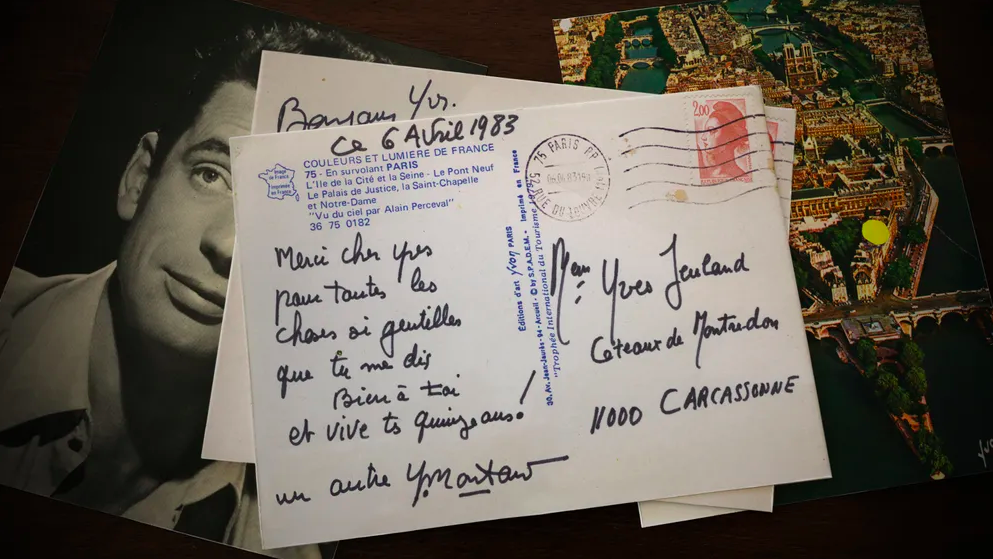 Bonjour Yves.
ce 6 Avril 1983
COULEURS ET LUMIERE DE FRANCE
75 - En survolant PARIS
L'Ile de la Cité et la Seine - Le Pont Neuf
Le Palais de Justice, la Saint-Chapelle
et Notre-Dame
"Vu du ciel par Alain Perceval"
36 75 0182
Image de France
Imprimée en France
Merci cher Yves
pour toutes les
choses si gentilles
que tu me dis
Bien à toi
et vive ts quinze ans!
un autre Y. Montand
Editions d'art Yvon PARIS
30, Av. Jean-Jaurès - 94 - Arcueil - © by S.P.A.D.E.M. - Imprimé en France
"Trophée International du Tourisme
75 PARIS PP
52 RUE DU LOUVRE
2,00
Yves Jeuland
Coteaux de Montredon
11000 CARCASSONNE